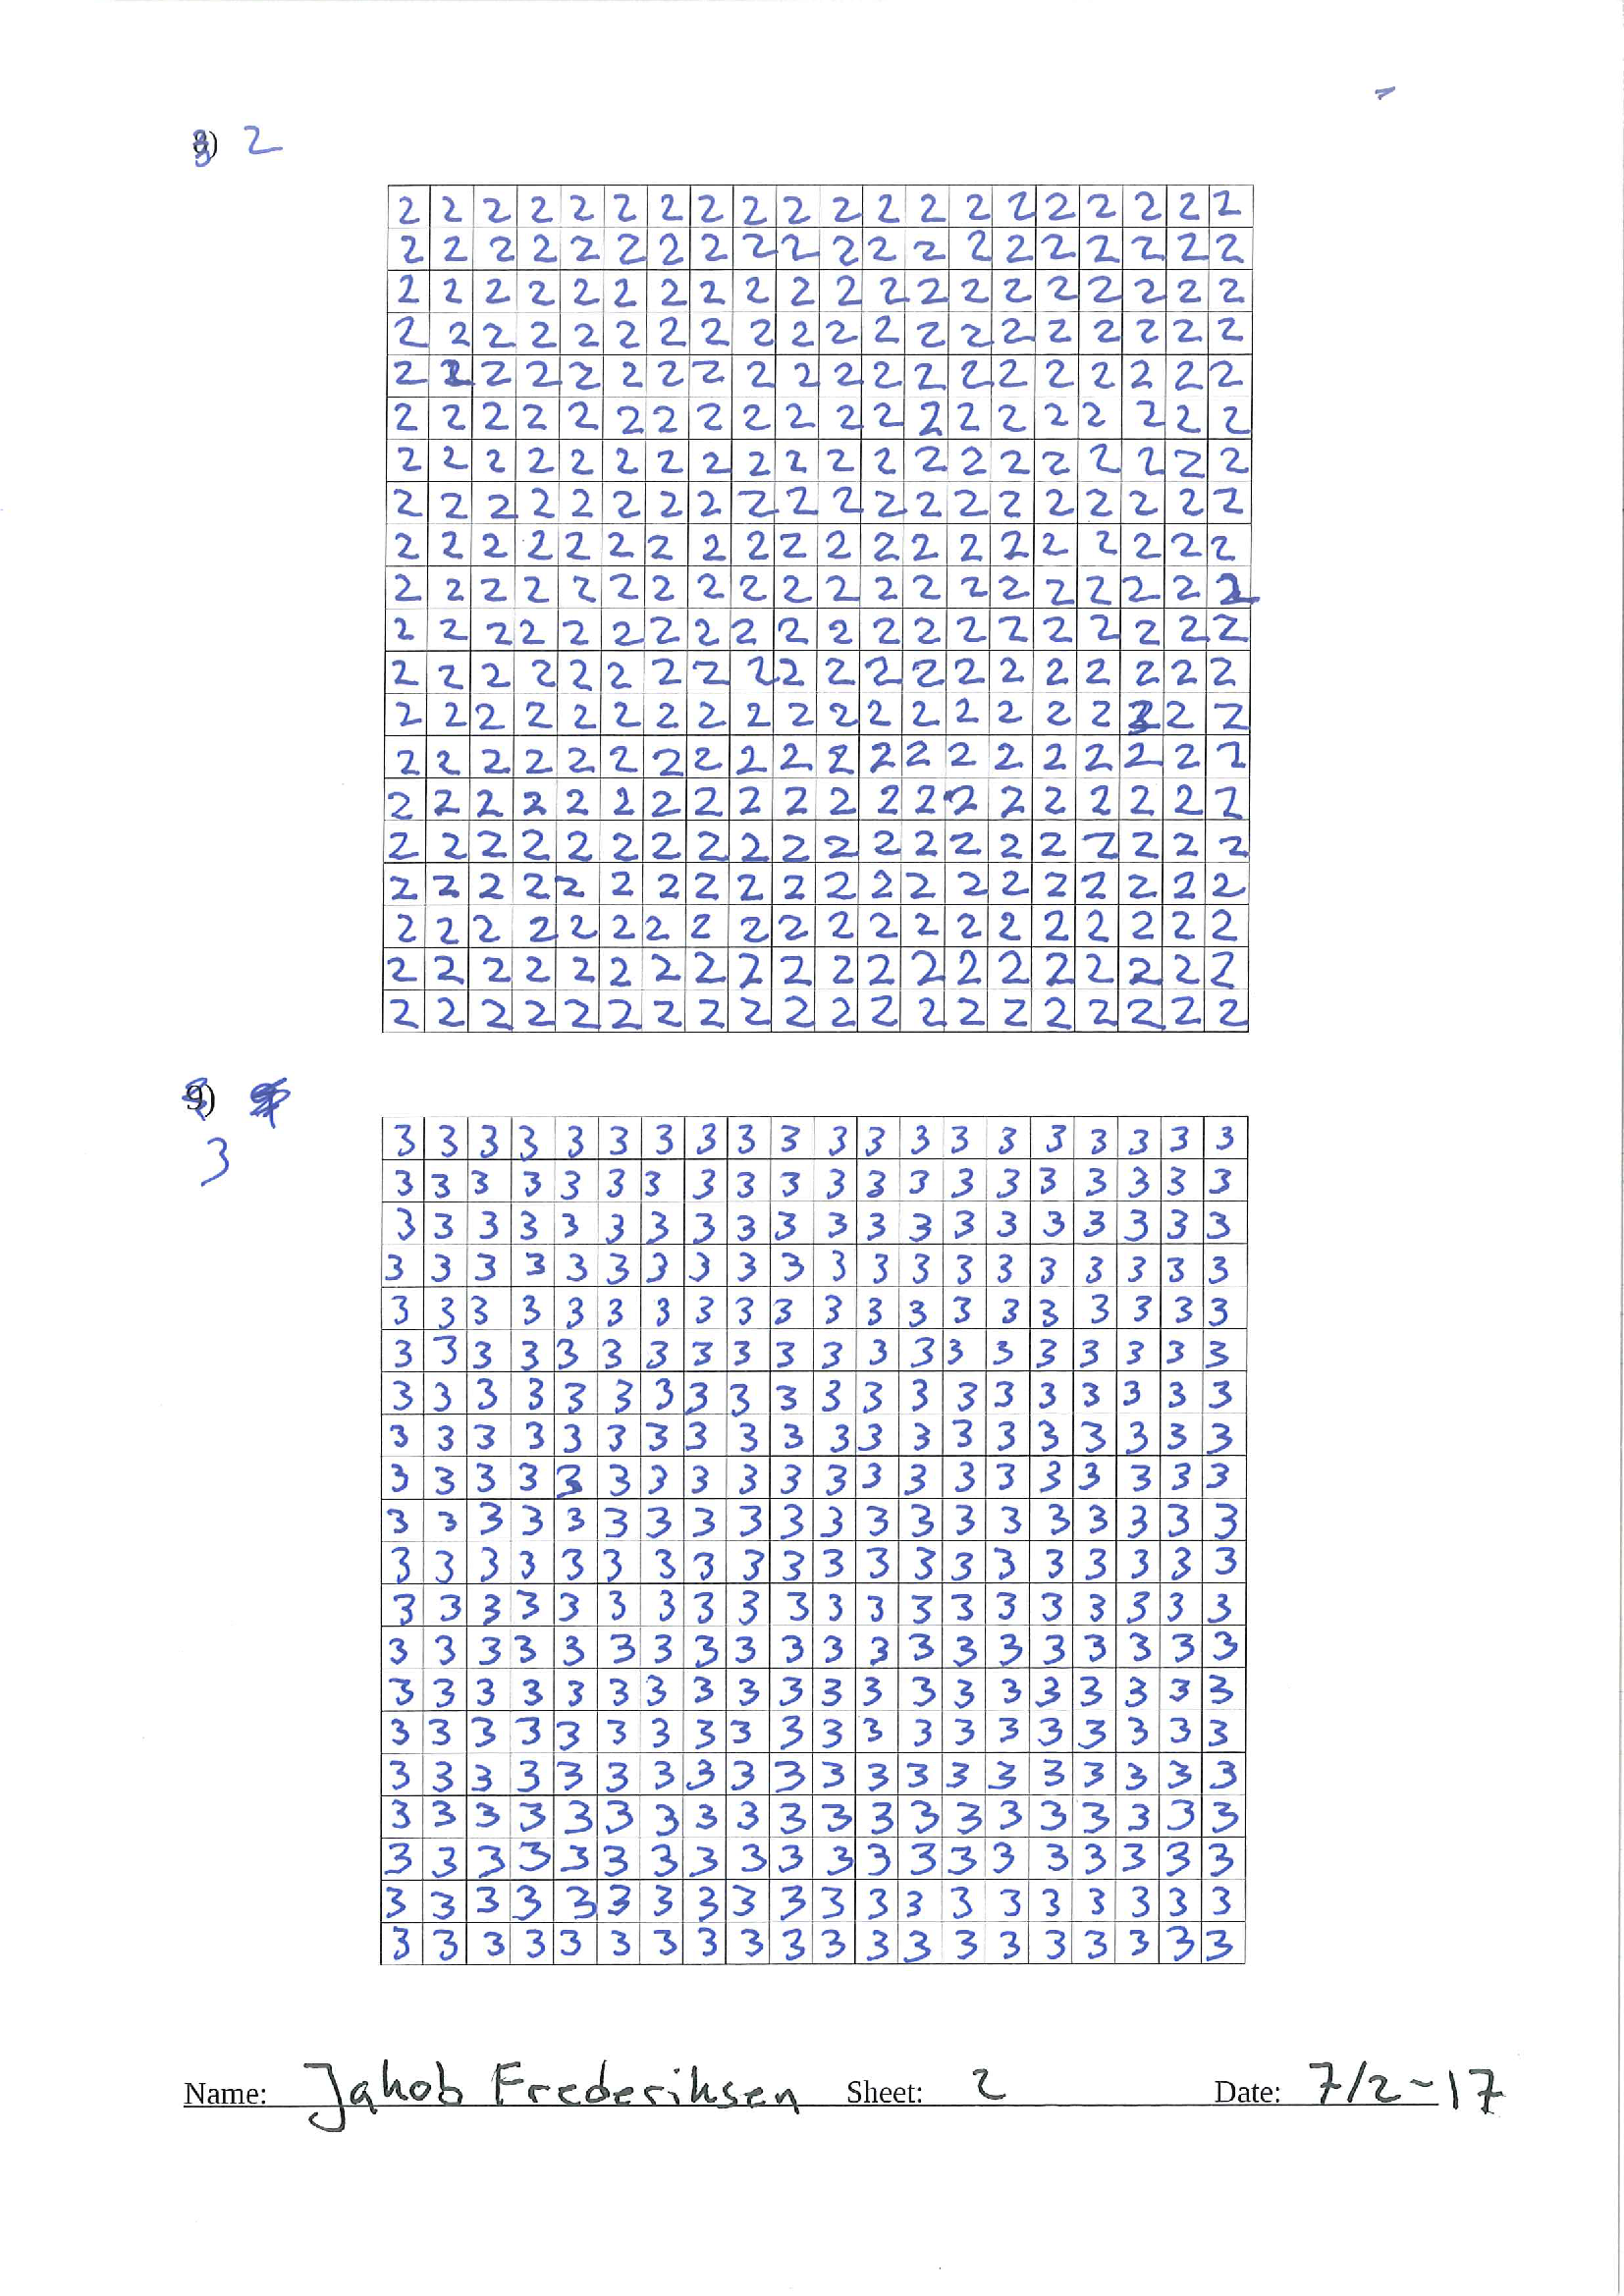 8) 2
2 2 2 2 2 2 2 2 2 2 2 2 2 2 2 2 2 2 2 2
2 2 2 2 2 2 2 2 2 2 2 2 2 2 2 2 2 2 2 2
2 2 2 2 2 2 2 2 2 2 2 2 2 2 2 2 2 2 2 2
2 2 2 2 2 2 2 2 2 2 2 2 2 2 2 2 2 2 2 2
2 2 2 2 2 2 2 2 2 2 2 2 2 2 2 2 2 2 2 2
2 2 2 2 2 2 2 2 2 2 2 2 2 2 2 2 2 2 2 2
2 2 2 2 2 2 2 2 2 2 2 2 2 2 2 2 2 2 2 2
2 2 2 2 2 2 2 2 2 2 2 2 2 2 2 2 2 2 2 2
2 2 2 2 2 2 2 2 2 2 2 2 2 2 2 2 2 2 2 2
2 2 2 2 2 2 2 2 2 2 2 2 2 2 2 2 2 2 2 2
2 2 2 2 2 2 2 2 2 2 2 2 2 2 2 2 2 2 2 2
2 2 2 2 2 2 2 2 2 2 2 2 2 2 2 2 2 2 2 2
2 2 2 2 2 2 2 2 2 2 2 2 2 2 2 2 2 2 2 2
2 2 2 2 2 2 2 2 2 2 2 2 2 2 2 2 2 2 2 2
2 2 2 2 2 2 2 2 2 2 2 2 2 2 2 2 2 2 2 2
2 2 2 2 2 2 2 2 2 2 2 2 2 2 2 2 2 2 2 2
2 2 2 2 2 2 2 2 2 2 2 2 2 2 2 2 2 2 2 2
2 2 2 2 2 2 2 2 2 2 2 2 2 2 2 2 2 2 2 2
2 2 2 2 2 2 2 2 2 2 2 2 2 2 2 2 2 2 2 2
2 2 2 2 2 2 2 2 2 2 2 2 2 2 2 2 2 2 2 2
9)
3
3 3 3 3 3 3 3 3 3 3 3 3 3 3 3 3 3 3 3 3
3 3 3 3 3 3 3 3 3 3 3 3 3 3 3 3 3 3 3 3
3 3 3 3 3 3 3 3 3 3 3 3 3 3 3 3 3 3 3 3
3 3 3 3 3 3 3 3 3 3 3 3 3 3 3 3 3 3 3 3
3 3 3 3 3 3 3 3 3 3 3 3 3 3 3 3 3 3 3 3
3 3 3 3 3 3 3 3 3 3 3 3 3 3 3 3 3 3 3 3
3 3 3 3 3 3 3 3 3 3 3 3 3 3 3 3 3 3 3 3
3 3 3 3 3 3 3 3 3 3 3 3 3 3 3 3 3 3 3 3
3 3 3 3 3 3 3 3 3 3 3 3 3 3 3 3 3 3 3 3
3 3 3 3 3 3 3 3 3 3 3 3 3 3 3 3 3 3 3 3
3 3 3 3 3 3 3 3 3 3 3 3 3 3 3 3 3 3 3 3
3 3 3 3 3 3 3 3 3 3 3 3 3 3 3 3 3 3 3 3
3 3 3 3 3 3 3 3 3 3 3 3 3 3 3 3 3 3 3 3
3 3 3 3 3 3 3 3 3 3 3 3 3 3 3 3 3 3 3 3
3 3 3 3 3 3 3 3 3 3 3 3 3 3 3 3 3 3 3 3
3 3 3 3 3 3 3 3 3 3 3 3 3 3 3 3 3 3 3 3
3 3 3 3 3 3 3 3 3 3 3 3 3 3 3 3 3 3 3 3
3 3 3 3 3 3 3 3 3 3 3 3 3 3 3 3 3 3 3 3
3 3 3 3 3 3 3 3 3 3 3 3 3 3 3 3 3 3 3 3
3 3 3 3 3 3 3 3 3 3 3 3 3 3 3 3 3 3 3 3
Name: Jakob Frederiksen Sheet: 2 Date: 7/2-17